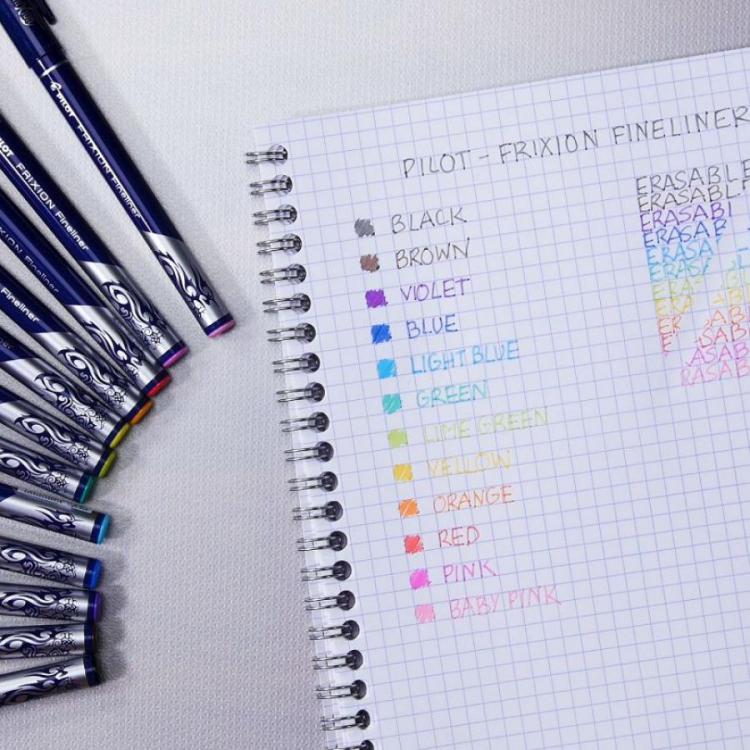 PILOT FRIXION Fineliner
PILOT FRIXION Fineliner
FRIXION Fineliner
Fineliner
PILOT - FRIXION FINELINER
BLACK
BROWN
VIOLET
BLUE
LIGHT BLUE
GREEN
LIME GREEN
YELLOW
ORANGE
RED
PINK
BABY PINK
ERASABLE
ERASABLE
ERASABL
ERASAB
ERASA
ERAS
ERA
ERA
ER ABL
SAB
ASAB
RASAB